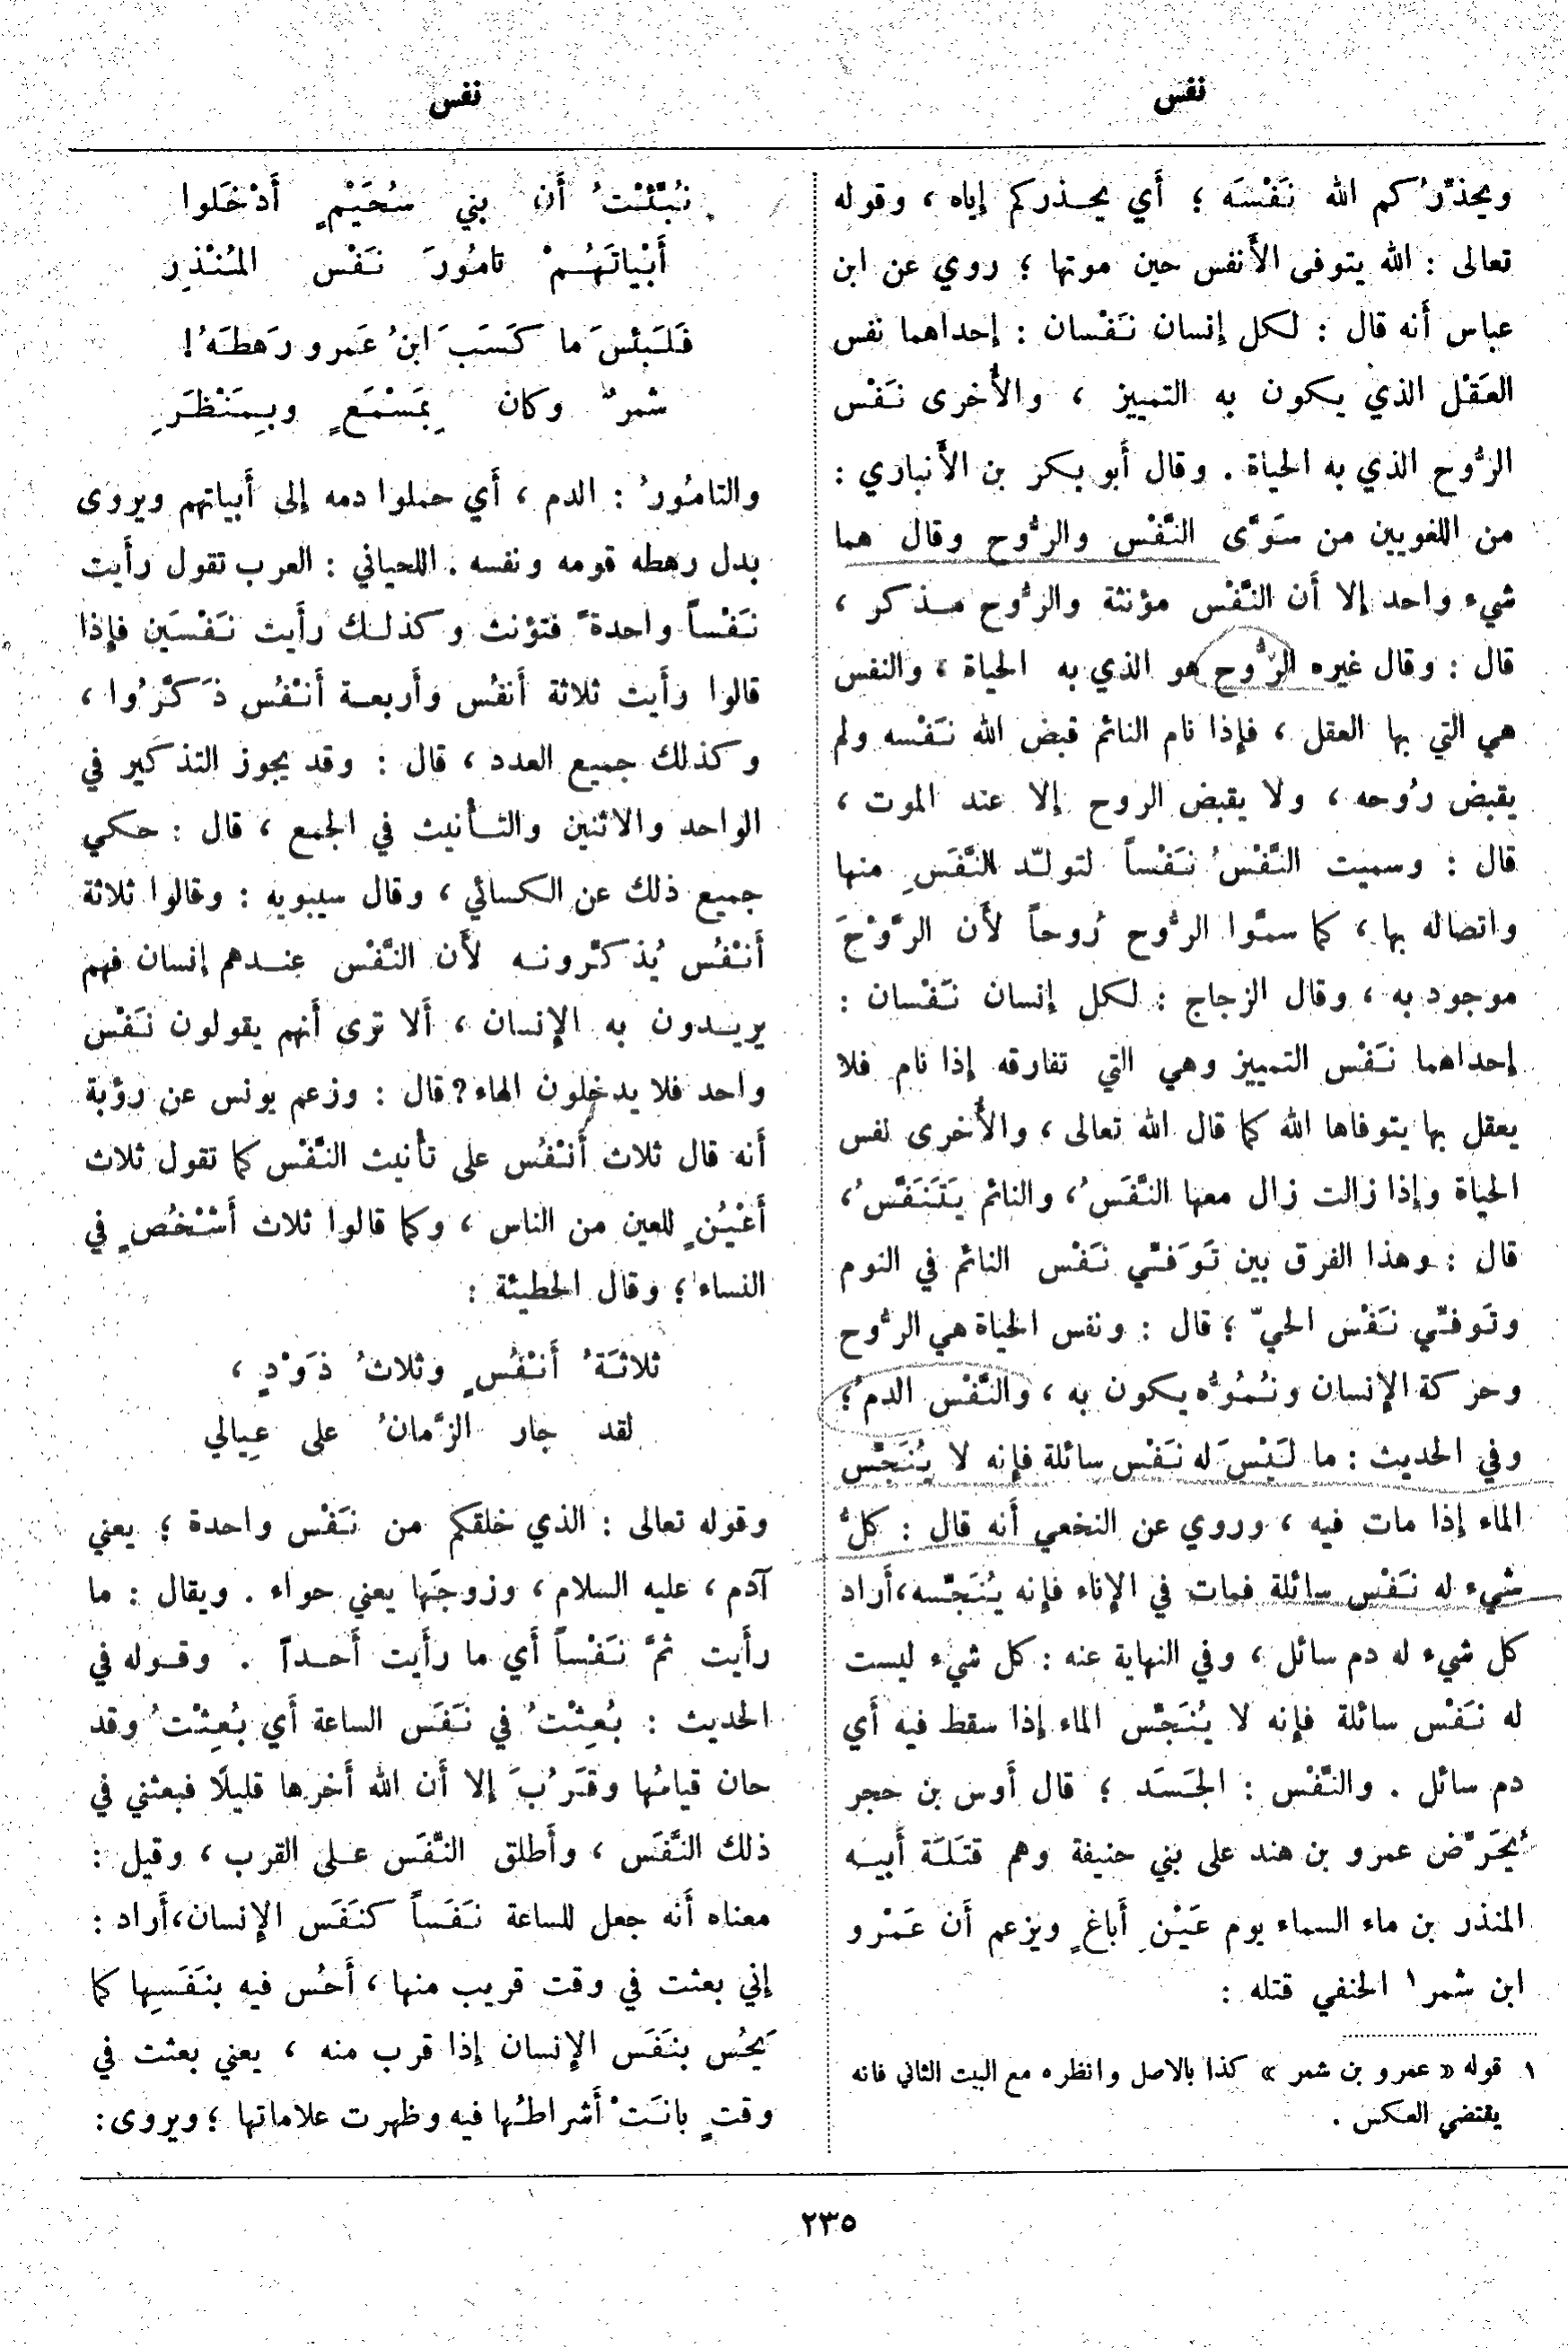 نفس
نفس
ويحذّرُكم الله نَفْسَه ؛ أَي يحـذركم إياه ، وقوله
تعالى : الله يتوفى الأَنفس حين موتها ؛ روي عن ابن
عباس أَنه قال : لكل إنسان نَفْسان : إحداهما نفس
العَقْل الذي يكون به التمييز ، والأُخرى نَفْس
الرُّوح الذي به الحياة . وقال أَبو بكر بن الأَنباري :
من اللغويين من سَوَّى النَّفْس والرُّوح وقال هما
شيء واحد إلا أَن النَّفْس مؤنثة والرُّوح مـذكر ،
قال : وقال غيره الرُّوح هو الذي به الحياة ، والنفس
هي التي بها العقل ، فإذا نام النائم قبض الله نَفْسه ولم
يقبض رُوحه ، ولا يقبض الروح إلا عند الموت ،
قال : وسميت النَّفْسُ نَفْساً لتولّد النَّفَسِ منها
واتصاله بها ، كما سمَّوا الرُّوح رُوحاً لأَن الرَّوْحَ
موجود به ، وقال الزجاج : لكل إنسان نَفْسان :
إحداهما نَفْس التمييز وهي التي تفارقه إذا نام فلا
يعقل بها يتوفاها الله كما قال الله تعالى ، والأُخرى نفس
الحياة وإذا زالت زال معها النَّفَسُ ، والنائم يَتَنَفَّسُ ،
قال : وهذا الفرق بين تَوَفّي نَفْس النائم في النوم
وتَوفّي نَفْس الحيّ ؛ قال : ونفس الحياة هي الرُّوح
وحركة الإنسان ونُمُوُّه يكون به ، والنَّفْس الدمُ ؛
وفي الحديث : ما لَيْسَ له نَفْس سائلة فإنه لا يُنَجِّس
الماء إذا مات فيه ، وروي عن النخعي أَنه قال : كلُّ
شيء له نَفْس سائلة فمات في الإناء فإنه يُنَجِّسه ، أَراد
كل شيء له دم سائل ، وفي النهاية عنه : كل شيء ليست
له نَفْس سائلة فإنه لا يُنَجِّس الماء إذا سقط فيه أَي
دم سائل . والنَّفْس : الجَسَد ؛ قال أَوس بن حجر
يُحَرِّض عمرو بن هند على بني حنيفة وهم قتَلَة أَبيـه
المنذر بن ماء السماء يوم عَيْنِ أَباغٍ ويزعم أَن عَمْرو
ابن شمر١ الحنفي قتله :
١ قوله « عمرو بن شمر » كذا بالاصل وانظره مع البيت الثاني فانه
يقتضي العكس .
نُبِّئْتُ أَن بني سُحَيْمٍ أَدْخَلوا
أَبْياتَهُـمْ تامُورَ نَفْس المُنْذِرِ
فَلَبئسَ ما كَسَبَ ابنُ عَمرو رَهطَهُ !
شمرٌ وكان بِمَسْمَعٍ وبِمَنْظَرِ
والتامُورُ : الدم ، أَي حملوا دمه إلى أَبياتهم ويروى
بدل رهطه قومه ونفسه . اللحياني : العرب تقول رأَيت
نَفْساً واحدةً فتؤنث وكذلك رأَيت نَفْسَين فإذا
قالوا رأَيت ثلاثة أَنفُس وأَربعـة أَنْفُس ذَكَّرُوا ،
وكذلك جميع العدد ، قال : وقد يجوز التذكير في
الواحد والاثنين والتـأنيث في الجمع ، قال : حكي
جميع ذلك عن الكسائي ، وقال سيبويه : وقالوا ثلاثة
أَنْفُس يُذكّرونـه لأَن النَّفْس عنـدهم إنسان فهم
يريـدون به الإنسان ، أَلا ترى أَنهم يقولون نَفْس
واحد فلا يدخلون الهاء ؟ قال : وزعم يونس عن رؤبة
أَنه قال ثلاث أَنْفُس على تأنيث النَّفْس كما تقول ثلاث
أَعْيُنٍ للعين من الناس ، وكما قالوا ثلاث أَشْخُصٍ في
النساء ؛ وقال الحطيئة :
ثلاثَةُ أَنْفُسٍ وثلاثُ ذَوْدٍ ،
لقد جار الزَّمانُ على عِيالي
وقوله تعالى : الذي خلقكم من نَفْس واحدة ؛ يعني
آدم ، عليه السلام ، وزوجَها يعني حواء . ويقال : ما
رأَيت ثمَّ نَفْساً أَي ما رأَيت أَحـداً . وقـوله في
الحديث : بُعِثْتُ في نَفَس الساعة أَي بُعِثْتُ وقد
حان قيامُها وقَرُبَ إلا أَن الله أَخرها قليلًا فبعثني في
ذلك النَّفَس ، وأَطلق النَّفَس عـلى القرب ، وقيل :
معناه أَنه جعل للساعة نَفَساً كنَفَس الإنسان ، أَراد :
إني بعثت في وقت قريب منها ، أَحُس فيه بنَفَسِها كما
يَحُس بنَفَس الإنسان إذا قرب منه ، يعني بعثت في
وقتٍ بانَتْ أَشراطُها فيه وظهرت علاماتها ؛ ويروى :
٢٣٥